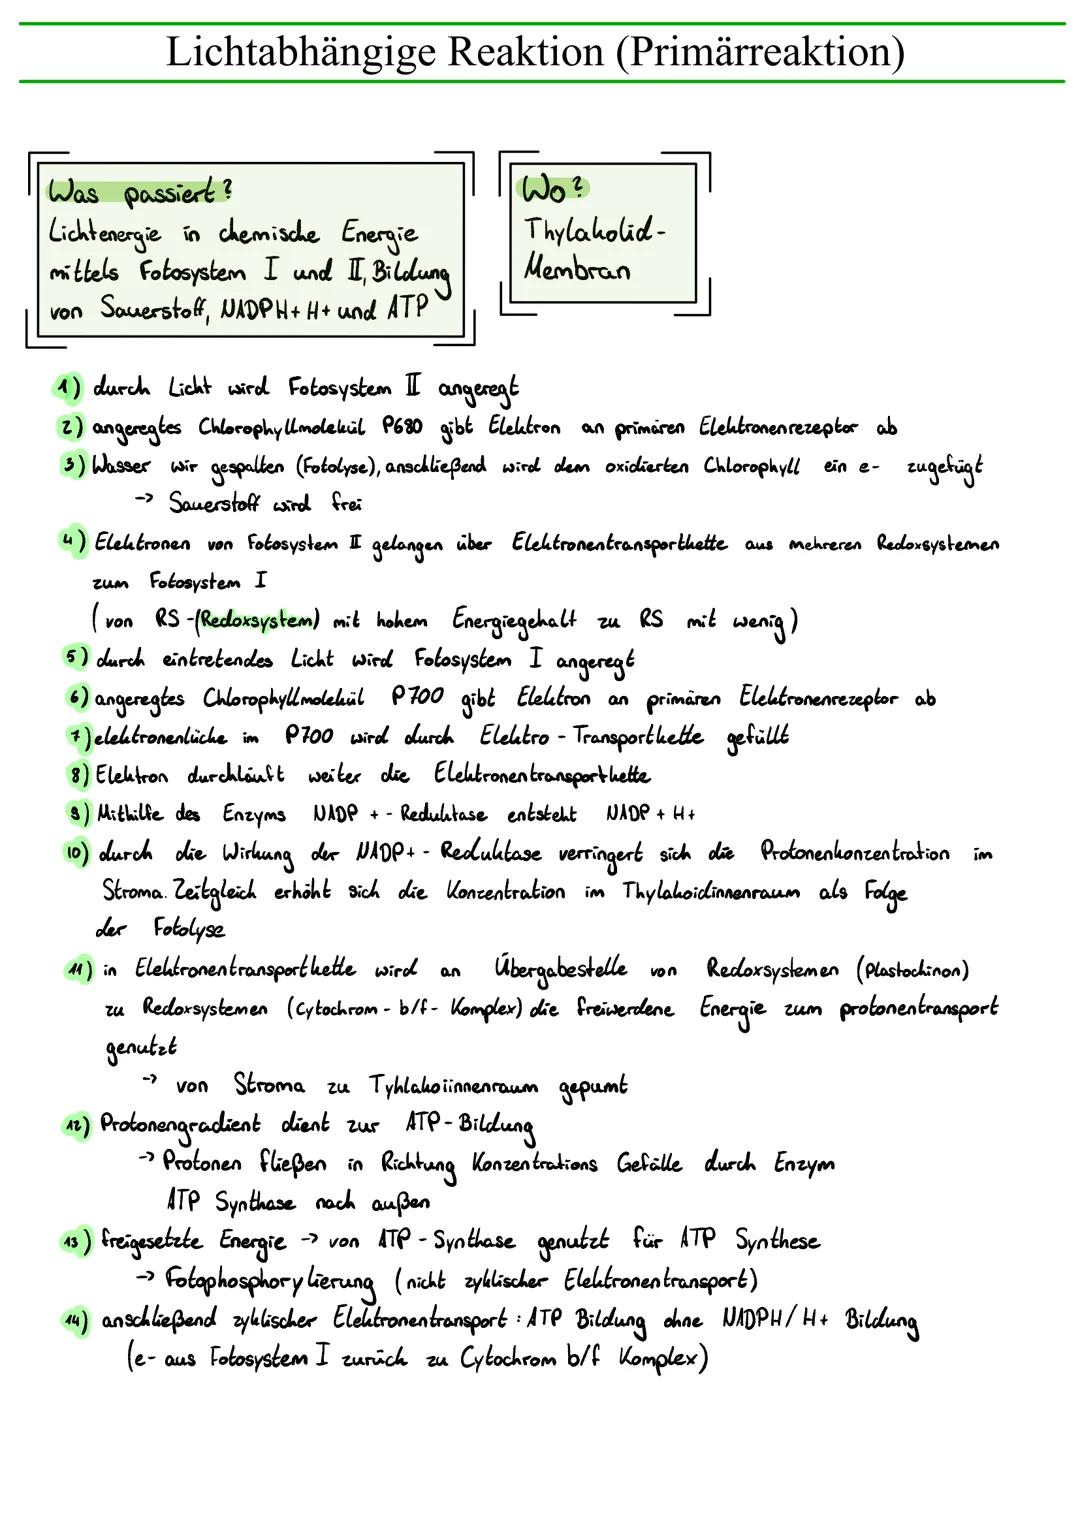 Lichtabhängige Reaktion (Primärreaktion)
Was passiert?
Lichtenergie in chemische Energie
mittels Fotosystem I und II, Bildung
von Sauerstoff, NADPH+ H+ und ATP
Wo?
Thylakolid-
Membran
1) durch Licht wird Fotosystem II angeregt
2) angeregtes Chlorophyllmolekül P680 gibt Elektron an primären Elektronenrezeptor ab
3) Wasser wir gespalten (Fotolyse), anschließend wird dem oxidierten Chlorophyll ein e- zugefügt
-> Sauerstoff wird frei
4) Elektronen von Fotosystem II gelangen über Elektronentransportkette aus mehreren Redoxsystemen
zum Fotosystem I
(von RS -(Redoxsystem) mit hohem Energiegehalt zu RS mit wenig)
5) durch eintretendes Licht wird Fotosystem I angeregt
6) angeregtes Chlorophyllmolekül P700 gibt Elektron an primären Elektronenrezeptor ab
7) elektronenlücke im P700 wird durch Elektro - Transportkette gefüllt
8) Elektron durchläuft weiter die Elektronentransportkette
9) Mithilfe des Enzyms NADP + - Reduktase entsteht NADP + H+
10) durch die Wirkung der NADP+ - Reduktase verringert sich die Protonenkonzentration im
Stroma. Zeitgleich erhöht sich die Konzentration im Thylakoidinnenraum als Folge
der Fotolyse
11) in Elektronentransportkette wird an Übergabestelle von Redoxsystemen (Plastochinon)
zu Redoxsystemen (Cytochrom - b/f - Komplex) die freiwerdene Energie zum protonentransport
genutzt
-> von Stroma zu Tyhlakoiinnenraum gepumt
12) Protonengradient dient zur ATP-Bildung
-> Protonen fließen in Richtung Konzentrations Gefälle durch Enzym
ATP Synthase nach außen
13) freigesetzte Energie -> von ATP - Synthase genutzt für ATP Synthese
-> Fotophosphorylierung (nicht zyklischer Elektronentransport)
14) anschließend zyklischer Elektronentransport : ATP Bildung ohne NADPH/H+ Bildung
(e- aus Fotosystem I zurück zu Cytochrom b/f Komplex)